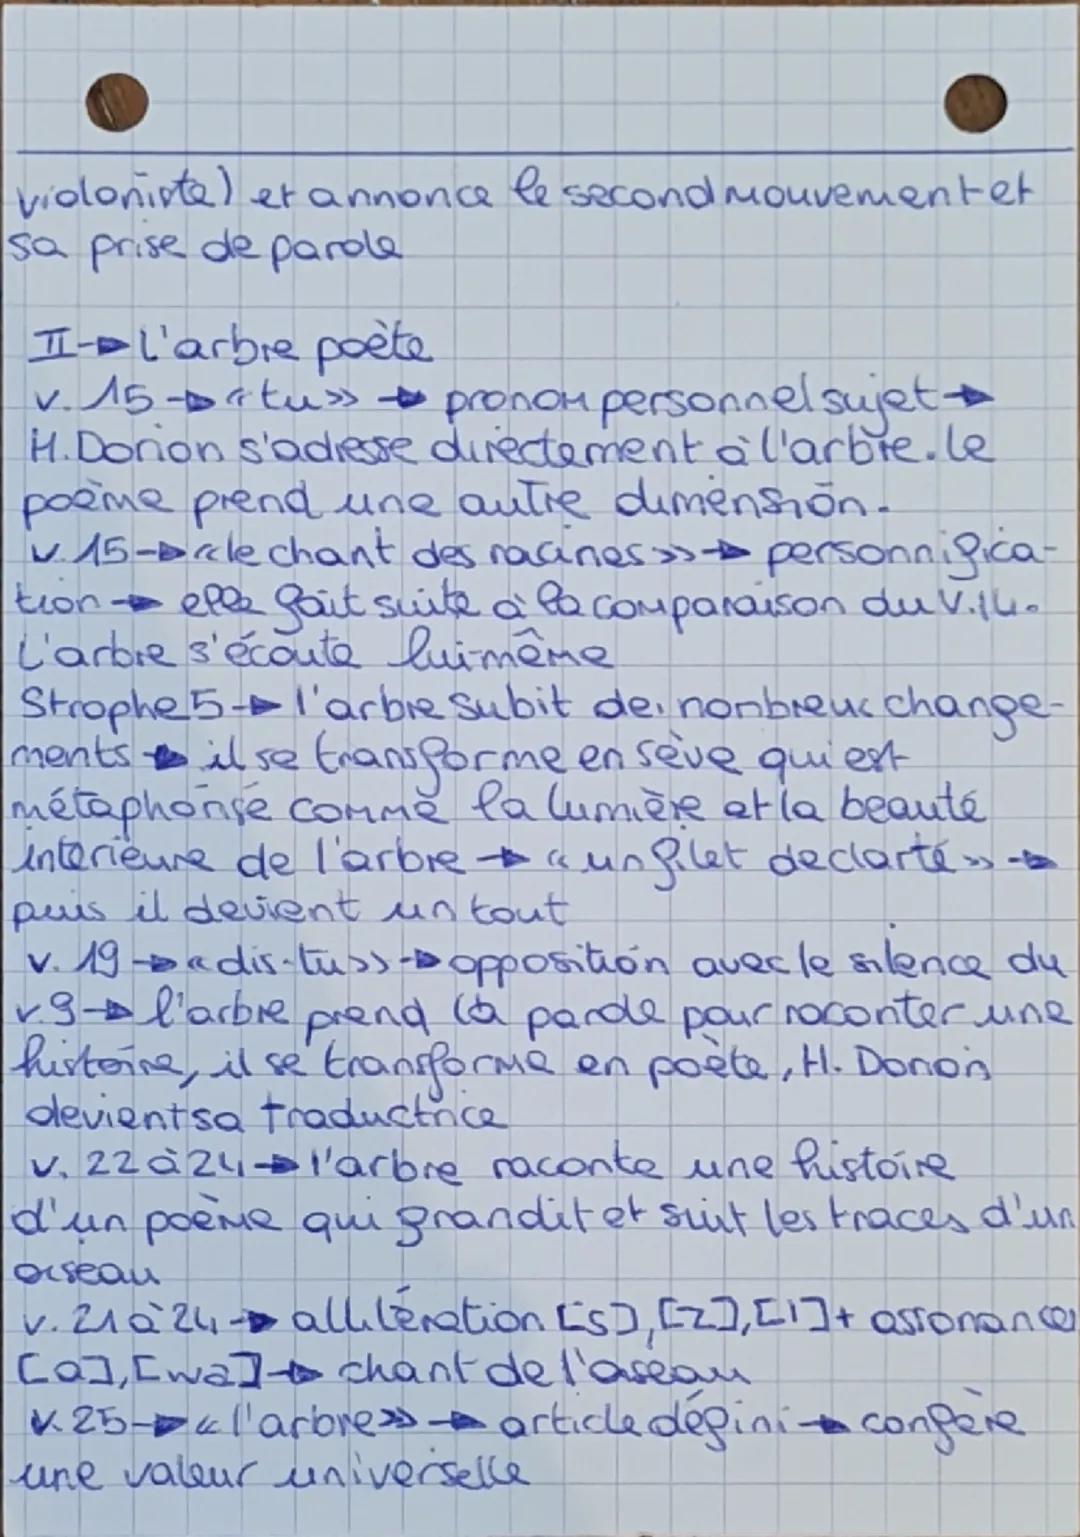 violoniste) et annonce le second mouvement et
sa prise de parole
II→l'arbre poète
v. 15→«tu»→pronom personnel sujet→
H. Dorion s'adresse directement à l'arbre. le
poème prend une autre dimension.
v. 15→«le chant des racines»→personnifica-
tion→elle fait suite à la comparaison du v.14.
L'arbre s'écoute lui-même
Strophe 5→l'arbre subit de nombreux change-
ments→il se transforme en sève qui est
métaphorisé comme la lumière et la beauté
intérieure de l'arbre→«un filet de clarté»→
puis il devient un tout
v. 19→«dis-tu»→opposition avec le silence du
v.9→l'arbre prend la parole pour raconter une
histoire, il se transforme en poète, H. Dorion
devient sa traductrice
v. 22 à 24→l'arbre raconte une histoire
d'un poème qui grandit et suit les traces d'un
oiseau
v. 21 à 24→allitération [s], [z], [l] + assonance
[a], [wa]→chant de l'oiseau
v. 25→«l'arbre»→article défini→confère
une valeur universelle